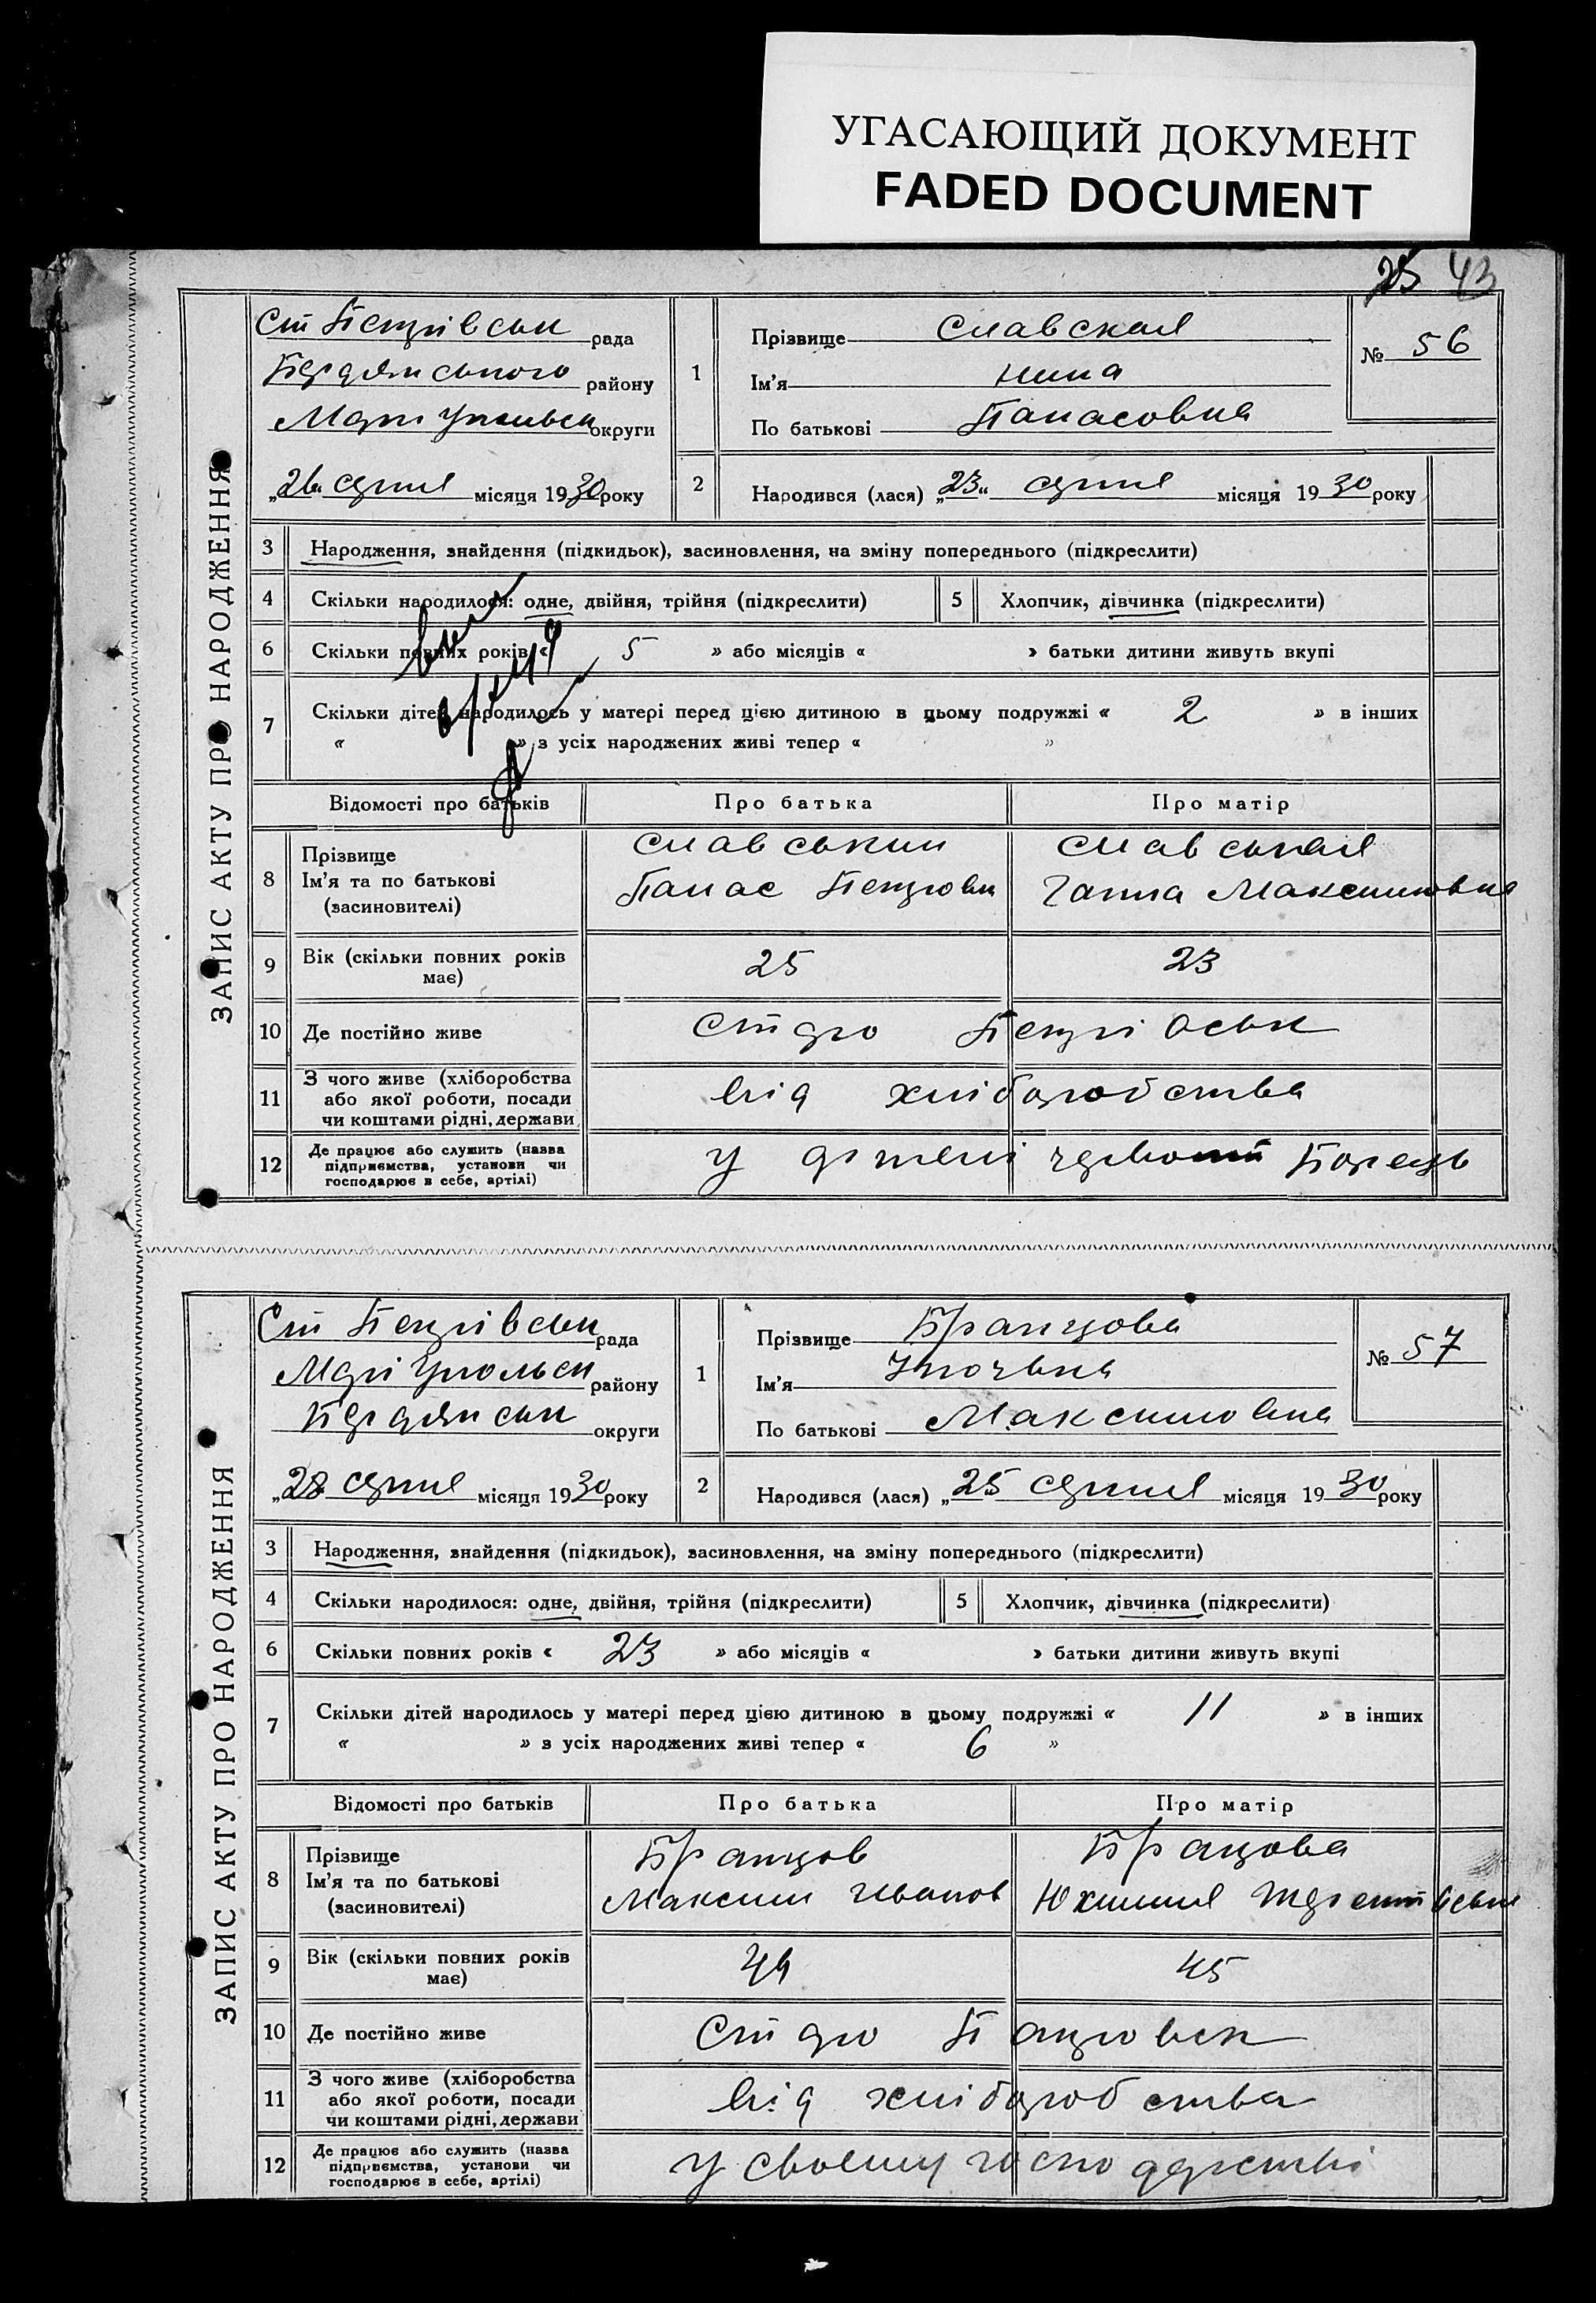 УГАСАЮЩИЙ ДОКУМЕНТ
FADED DOCUMENT
25 43
ЗАПИС АКТУ ПРО НАРОДЖЕННЯ
Ст Петрівськ рада
Бердянського району
Маріупільськ округи
„26“ серпня місяця 1930 року
1
Прізвище Славская
Ім’я Нина
По батькові Панасовна
№ 56
2 Народився (лася) „23“ серпня місяця 1930 року
3 Народження, знайдення (підкидьок), засиновлення, на зміну попереднього (підкреслити)
4 Скільки народилося: одне, двійня, трійня (підкреслити) 5 Хлопчик, дівчинка (підкреслити)
6 Скільки повних років « 5 » або місяців « » батьки дитини живуть вкупі
7 Скільки дітей народилось у матері перед цією дитиною в цьому подружжі « 2 » в інших
« » з усіх народжених живі тепер « »
Відомості про батьків Про батька Про матір
8 Прізвище Ім’я та по батькові (засновителі)
Славський Славськая
Панас Петрович Ганна Максимовна
9 Вік (скільки повних років має) 25 23
10 Де постійно живе Ст Петрівськ
11 З чого живе (хліборобства або якої роботи, посади чи коштами рідні, держави від хліборобства
12 Де працює або служить (назва підприємства, установи чи господарює в себе, артілі) У артелі Борець
ЗАПИС АКТУ ПРО НАРОДЖЕННЯ
Ст Петрівськ рада
Маріупольськ району
Бердянськ округи
„28 серпня місяця 1930 року
1
Прізвище
Ім’я
По батькові Максимовна
№ 57
2 Народився (лася) „25 серпня місяця 1930 року
3 Народження, знайдення (підкидьок), засиновлення, на зміну попереднього (підкреслити)
4 Скільки народилося: одне, двійня, трійня (підкреслити) 5 Хлопчик, дівчинка (підкреслити)
6 Скільки повних років « 23 » або місяців « » батьки дитини живуть вкупі
7 Скільки дітей народилось у матері перед цією дитиною в цьому подружжі « 11 » в інших
« » з усіх народжених живі тепер « 6 »
Відомості про батьків Про батька Про матір
8 Прізвище Ім’я та по батькові (засиновителі)
Максим Иванов Юхимия
9 Вік (скільки повних років має) 44 45
10 Де постійно живе Ст
11 З чого живе (хліборобства або якої роботи, посади чи коштами рідні, держави від хліборобства
12 Де працює або служить (назва підприємства, установи чи господарює в себе, артілі) у своему господарстві